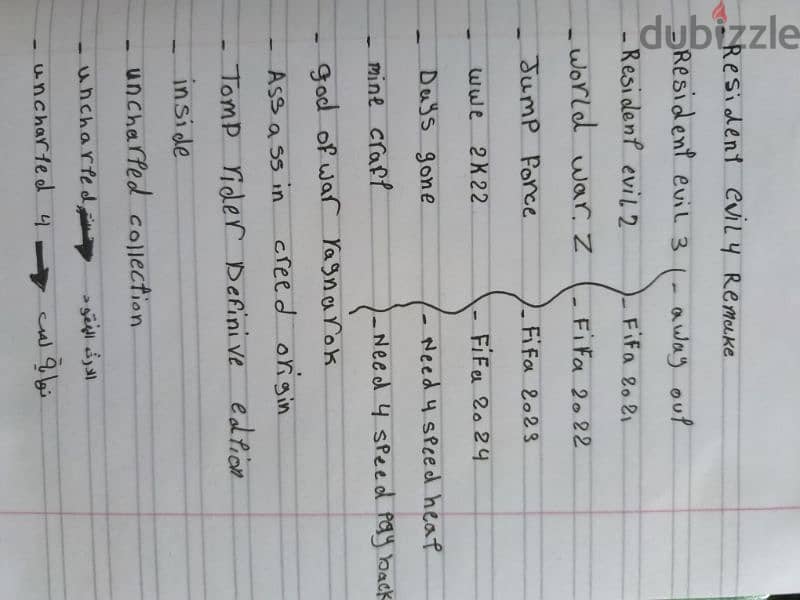 dubizzle
- Resident evil 4 Remake
- Resident evil 3 - away out
- Resident evil 2 - Fifa 2021
- World war. Z - Fifa 2022
- Jump Force - Fifa 2023
- wwe 2K22 - FiFa 2024
- Days gone - Need 4 speed heat
- mine craft - Need 4 speed pay back
- god of war ragnarok
- Assassin creed origin
- Tomp rider Definive edtion
- inside
- uncharted collection
- uncharted → الارث المفقود
- uncharted 4 → نهاية لص